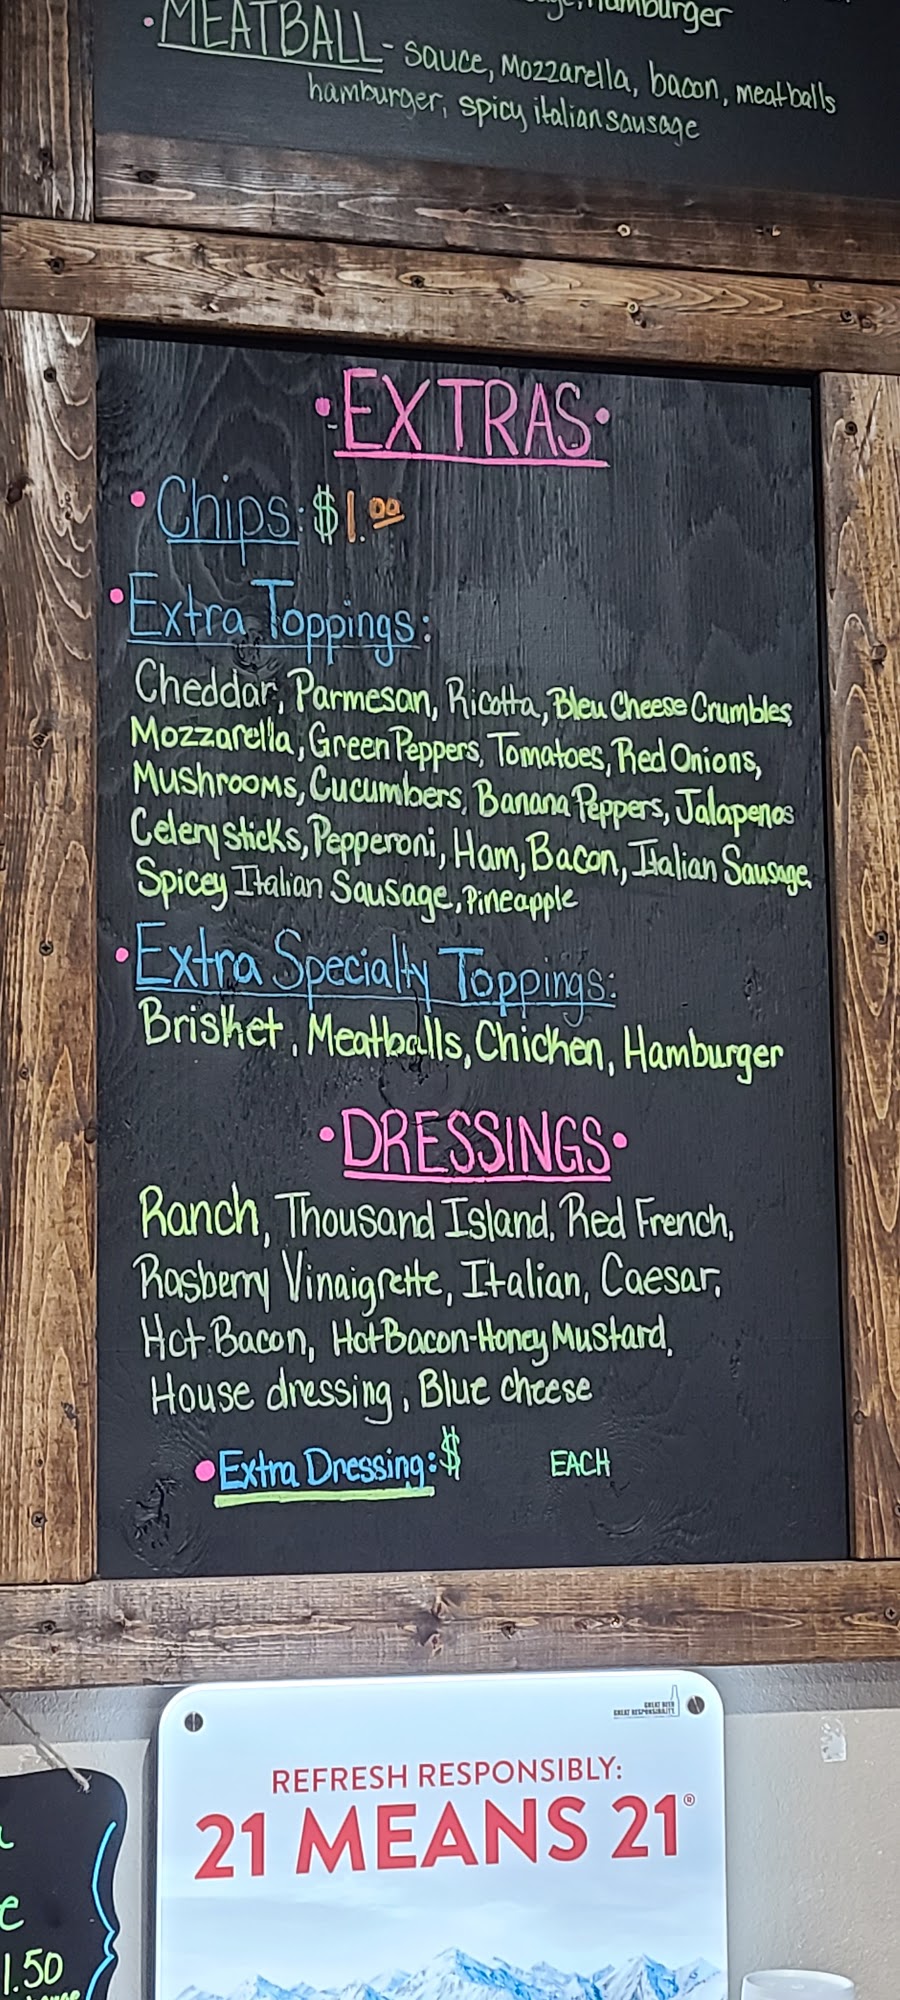 hamburger
• MEATBALL - sauce, Mozzarella, bacon, meatballs
hamburger, spicy italian sausage
• EXTRAS •
• Chips: $1.00
• Extra Toppings:
Cheddar, Parmesan, Ricotta, Bleu Cheese Crumbles,
Mozzarella, Green Peppers, Tomatoes, Red Onions,
Mushrooms, Cucumbers, Banana Peppers, Jalapenos
Celery sticks, Pepperoni, Ham, Bacon, Italian Sausage,
Spicey Italian Sausage, Pineapple
• Extra Specialty Toppings:
Brisket, Meatballs, Chicken, Hamburger
• DRESSINGS •
Ranch, Thousand Island, Red French,
Rasberry Vinaigrette, Italian, Caesar,
Hot Bacon, Hot Bacon-Honey Mustard,
House dressing, Blue cheese
• Extra Dressing: $ EACH
GREAT BEER
GREAT RESPONSIBILITY
REFRESH RESPONSIBLY:
21 MEANS 21®
1.50